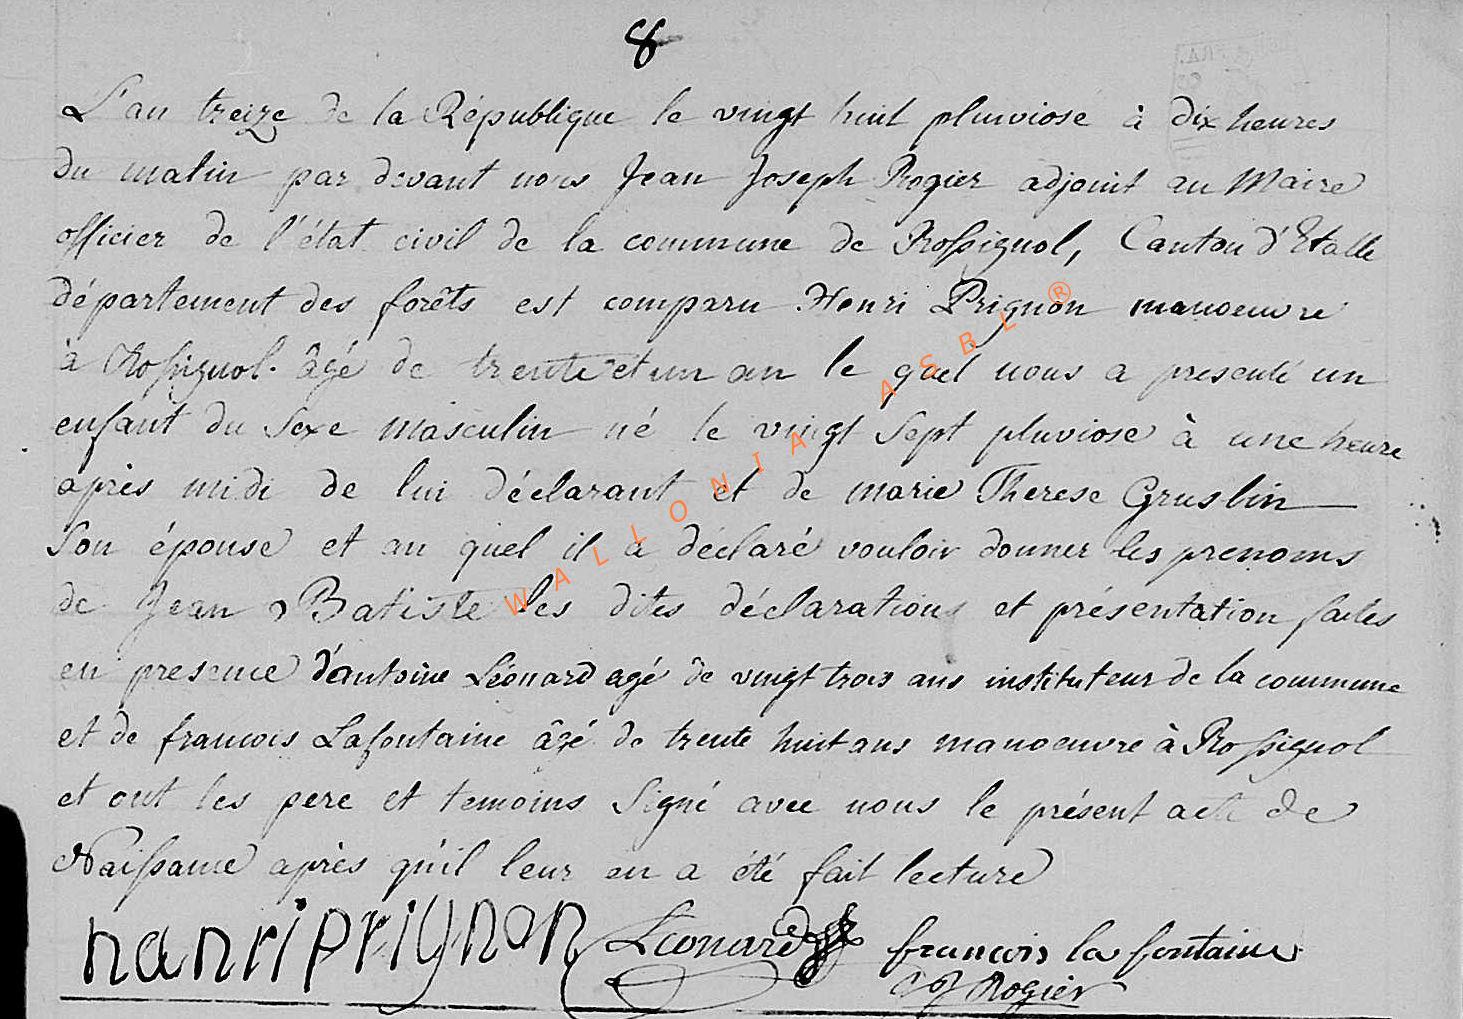 8
L'an treize de la République le vingt huit pluviose à dix heures
du matin par devant nous Jean Joseph Rogier adjoint au Maire
officier de l'état civil de la commune de Rossignol, Canton d'Etalle
département des forêts est comparu Henri Prignon manoeuvre
à Rossignol. âgé de trente et un an le quel nous a presenté un
enfant du Sexe masculin né le vingt Sept pluviose à une heure
après midi de lui déclarant et de marie Therese Gruslin
Son épouse et au quel il a déclaré vouloir donner les prenoms
de Jean Batiste les dites déclarations et présentation faites
en presence d'antoine Léonard agé de vingt trois ans instituteur de la commune
et de francois Lafontaine âgé de trente huit ans manoeuvre à Rossignol
et ont les pere et temoins Signé avec nous le présent acte de
Naissance après qu'il leur en a été fait lecture
hanri prignon Leonard francois la fontaine
JJ Rogier
WALLONIA ASBL ®